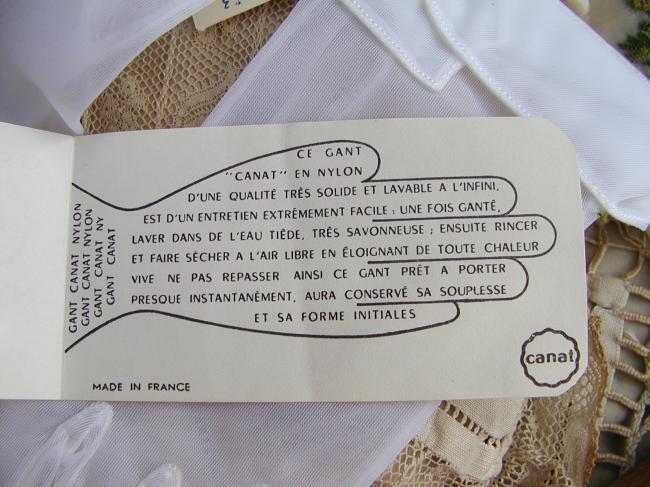 CE GANT
"CANAT" EN NYLON
D'UNE QUALITÉ TRÈS SOLIDE ET LAVABLE A L'INFINI,
EST D'UN ENTRETIEN EXTRÊMEMENT FACILE : UNE FOIS GANTÉ,
LAVER DANS DE L'EAU TIÈDE, TRÈS SAVONNEUSE ; ENSUITE RINCER
ET FAIRE SÉCHER A L'AIR LIBRE EN ÉLOIGNANT DE TOUTE CHALEUR
VIVE NE PAS REPASSER AINSI CE GANT PRÊT A PORTER
PRESQUE INSTANTANÉMENT, AURA CONSERVÉ SA SOUPLESSE
ET SA FORME INITIALES
GANT CANAT NYLON
GANT CANAT NYLON
GANT CANAT NY
GANT CANAT
MADE IN FRANCE
canat